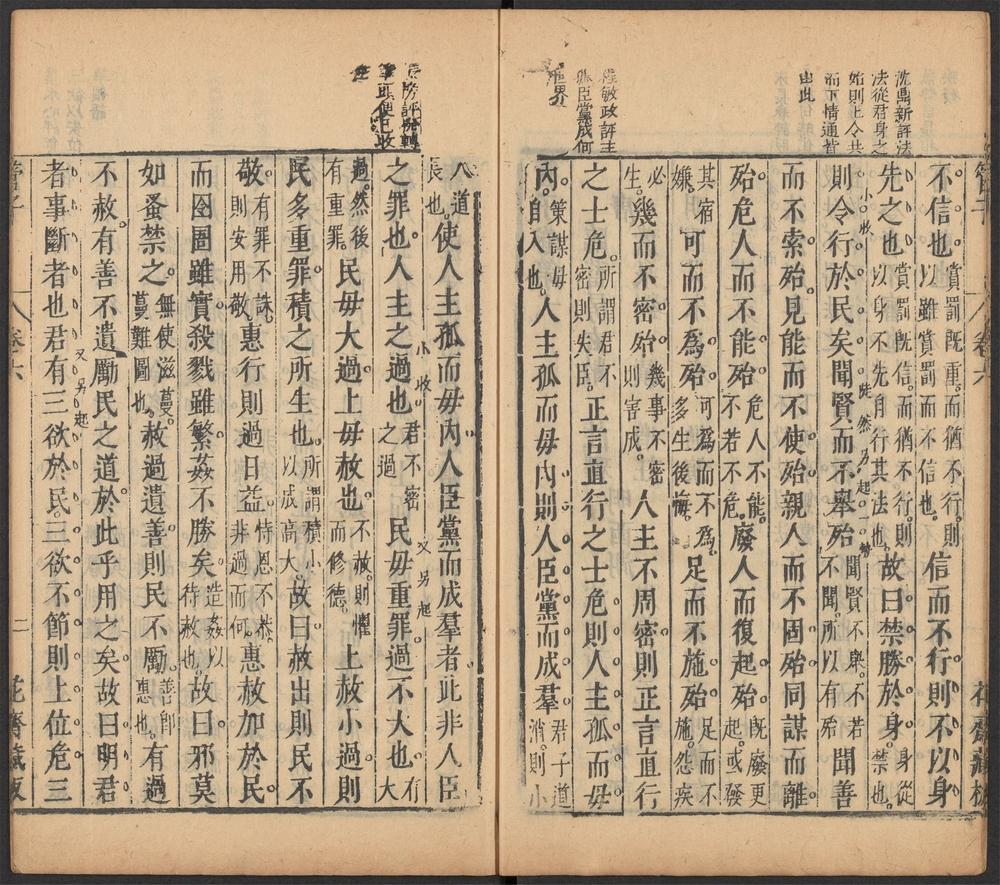 沈鼎新評法
法從君身之
始則上令共
而下情通皆
由此
程敏政評主
孤臣黨成何
世界
管子 卷六 花齋藏板
不信也賞罰既重。而猶不行。則以雖賞罰而不信也。信而不行則不以身
先之也賞罰既信。而猶不行。則以身不先自行其法也。故曰禁勝於身。身從禁也。
小收
則令行於民矣聞賢而不舉殆聞賢不舉。不若不聞。所以有殆聞善
陡然另起一轉
而不索殆見能而不使殆親人而不固殆同謀而離
殆危人而不能殆危人不能。不若不危。廢人而復起殆既廢更起。或發
其宿嫌。可而不為殆可為而不為。多生後悔。足而不施殆足而不施。怨疾
必生。幾而不密殆幾事不密則害成。人主不周密則正言直行
之士危所謂君不密則失臣。正言直行之士危則人主孤而毋
內策謀毋自入也。人主孤而毋內則人臣黨而成羣君子道消。則小
評發轉
筆頭便已收
住
人道長也。使人主孤而毋內人臣黨而成羣者此非人臣
之罪也人主之過也君不密之過民毋重罪過不大也有大
小收
又另起
過。然後有重罪。民毋大過上毋赦也不赦。則懼而修德。上赦小過則
民多重罪積之所生也所謂積小以成高大。故曰赦出則民不
敬有罪不誅。則安用敬。惠行則過日益恃恩不恭。非過而何。惠赦加於民
而囹圄雖實殺戮雖繁姦不勝矣造姦以待赦也。故曰邪莫
如蚤禁之無使滋蔓。蔓難圖也。赦過遺善則民不勵善即惠也。有過
不赦有善不遺勵民之道於此乎用之矣故曰明君
又另起
者事斷者也君有三欲於民三欲不節則上位危三
管子 卷六 二 花齋藏板